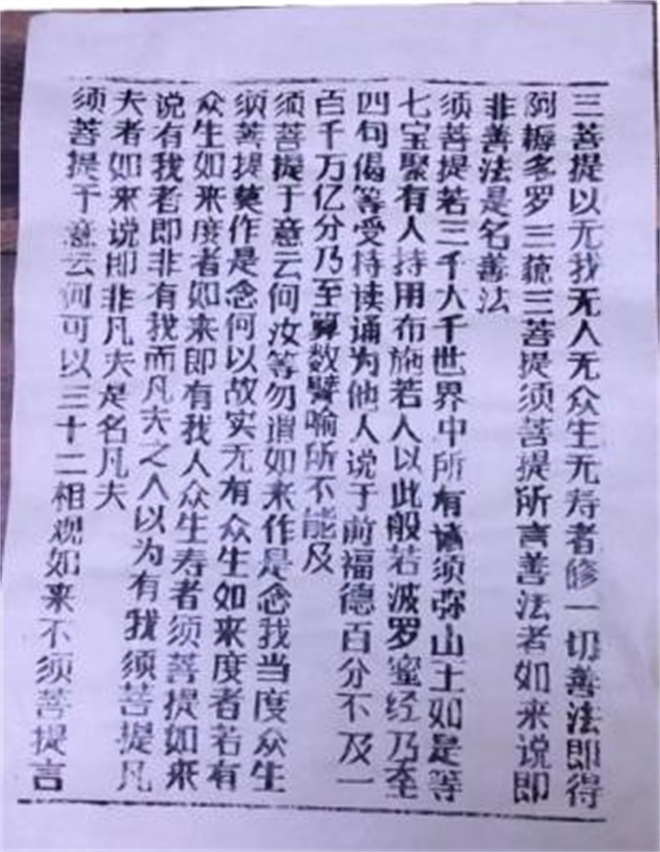 三菩提以无我无人无众生无寿者修一切善法即得
阿耨多罗三藐三菩提须菩提所言善法者如来说即
非善法是名善法
须菩提若三千大千世界中所有诸须弥山王如是等
七宝聚有人持用布施若人以此般若波罗蜜经乃至
四句偈等受持读诵为他人说于前福德百分不及一
百千万亿分乃至算数譬喻所不能及
须菩提于意云何汝等勿谓如来作是念我当度众生
须菩提莫作是念何以故实无有众生如来度者若有
众生如来度者如来即有我人众生寿者须菩提如来
说有我者即非有我而凡夫之人以为有我须菩提凡
夫者如来说即非凡夫是名凡夫
须菩提于意云何可以三十二相观如来不须菩提言